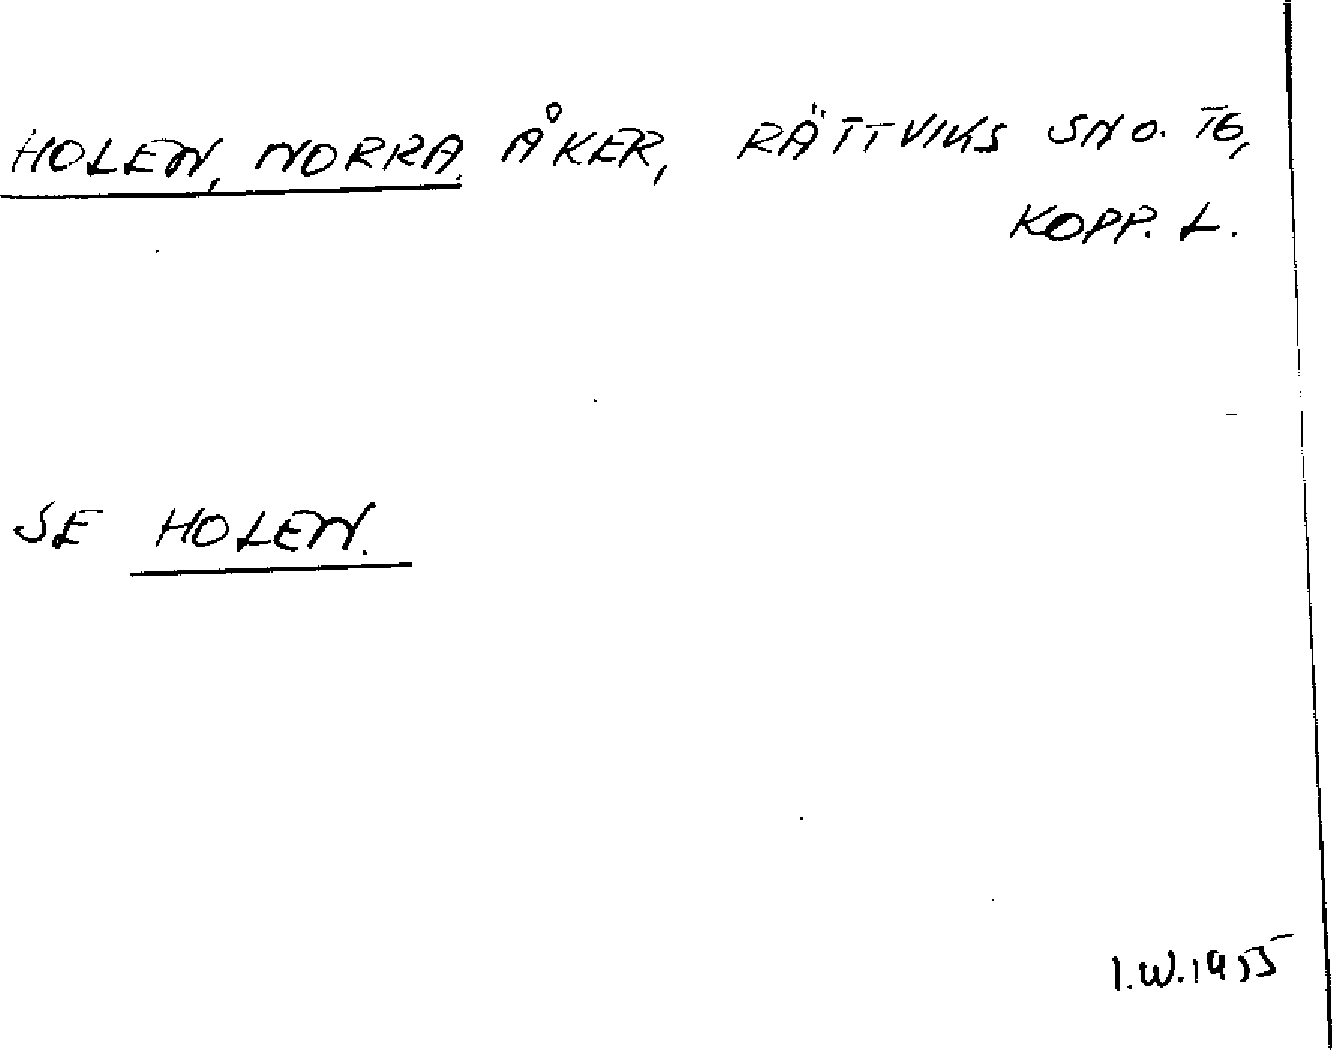 HOLEN, NORRA. ÅKER, RÄTTVIKS SN O. TG,
KOPP. L.
SE HOLEN.
I.W. 1955